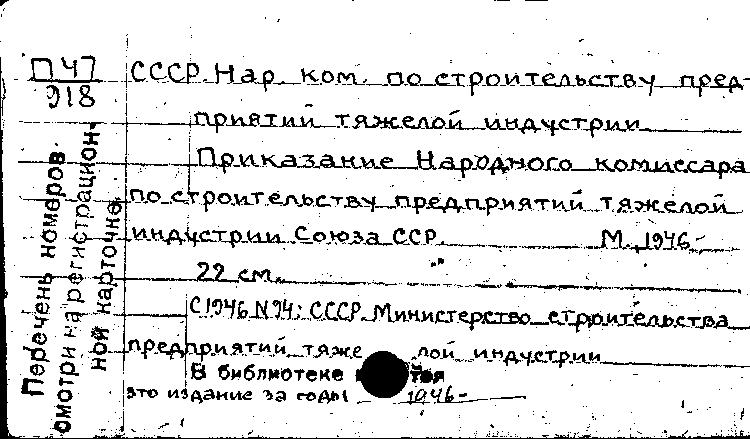 П47
918
СССР. Нар. ком. по строительству пред-
приятий тяжелой индустрии
Приказание Народного комиссара
по строительству предприятий тяжелой
индустрии Союза ССР. М. 1946-
22 см.
С 1946 N 94: СССР. Министерство строительства
предприятий тяжелой индустрии
В библиотеке
это издание за годы 1946-
Перечень номеров
смотри на регистрацион-
ной карточке